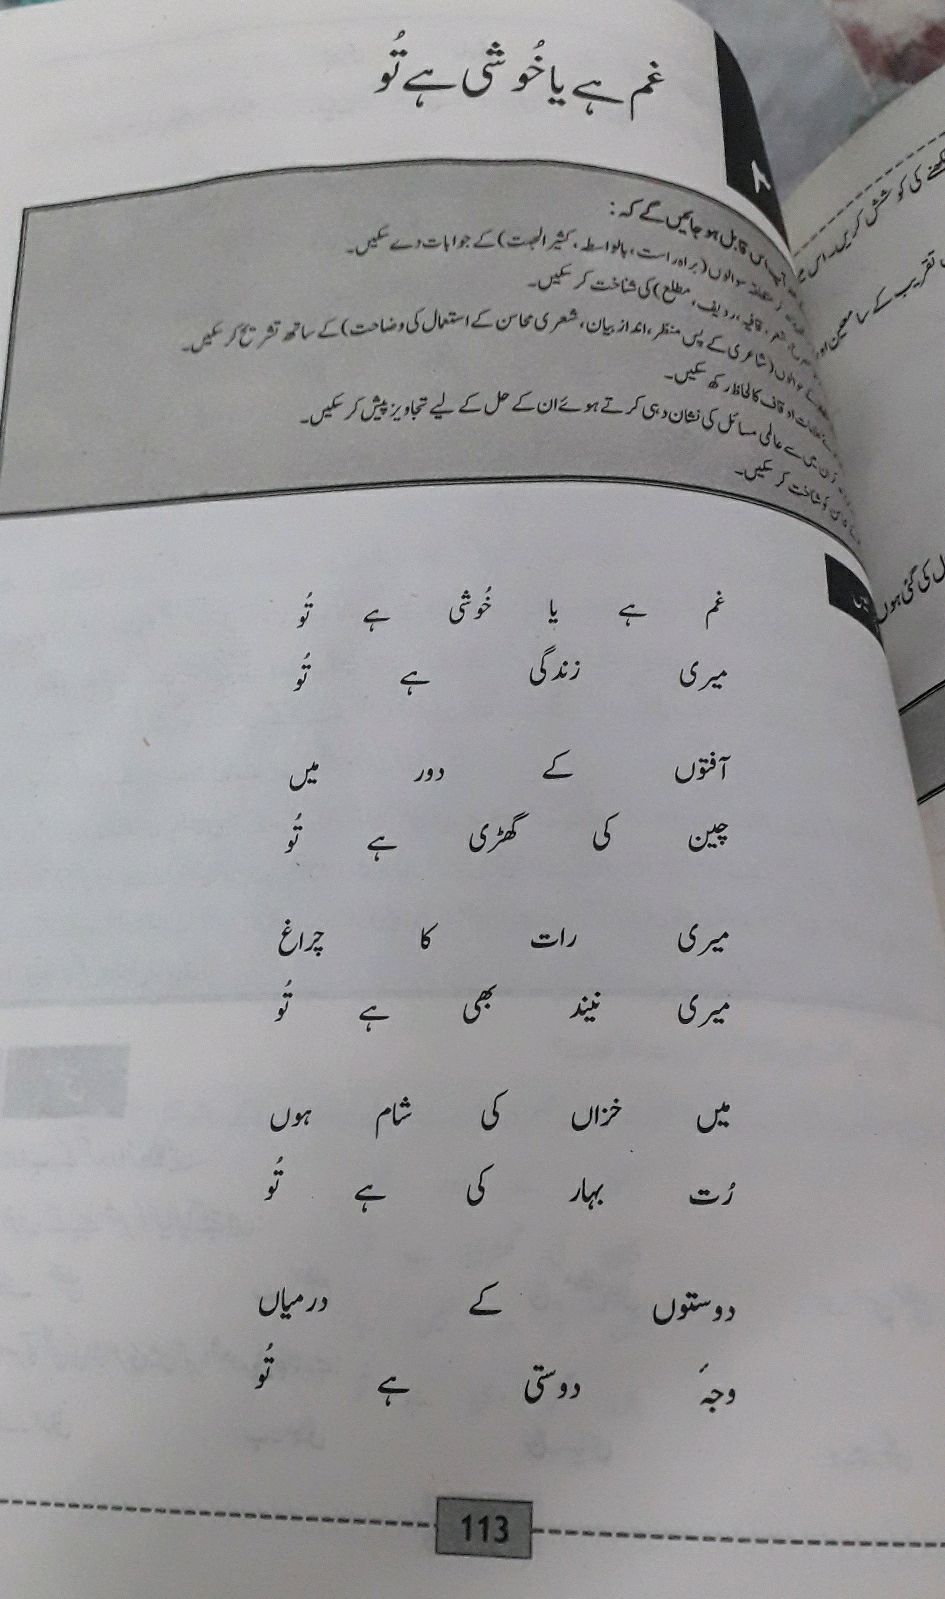 غم ہے یا خُوشی ہے تُو
۲
آپ اس قابل ہو جائیں گے کہ:
سوالوں (براہ راست، بالواسطہ، کثیر الجہت) کے جوابات دے سکیں۔
قافیہ، ردیف، مطلع) کی شناخت کر سکیں۔
(شاعری کے پس منظر، انداز بیان، شعری محاسن کے استعمال کی وضاحت) کے ساتھ تشریح کر سکیں۔
اوقاف کا لحاظ رکھ سکیں۔
میں سے عالمی مسائل کی نشان دہی کرتے ہوئے ان کے حل کے لیے تجاویز پیش کر سکیں۔
شناخت کر سکیں۔
غم ہے یا خُوشی ہے تُو
میری زندگی ہے تُو
آفتوں کے دور میں
چین کی گھڑی ہے تُو
میری رات کا چراغ
میری نیند بھی ہے تُو
میں خزاں کی شام ہوں
رُت بہار کی ہے تُو
دوستوں کے درمیاں
وجہَ دوستی ہے تُو
113
کی کوشش کریں۔ اس
تقریب کے سامعین اور
کی گئی ہوں